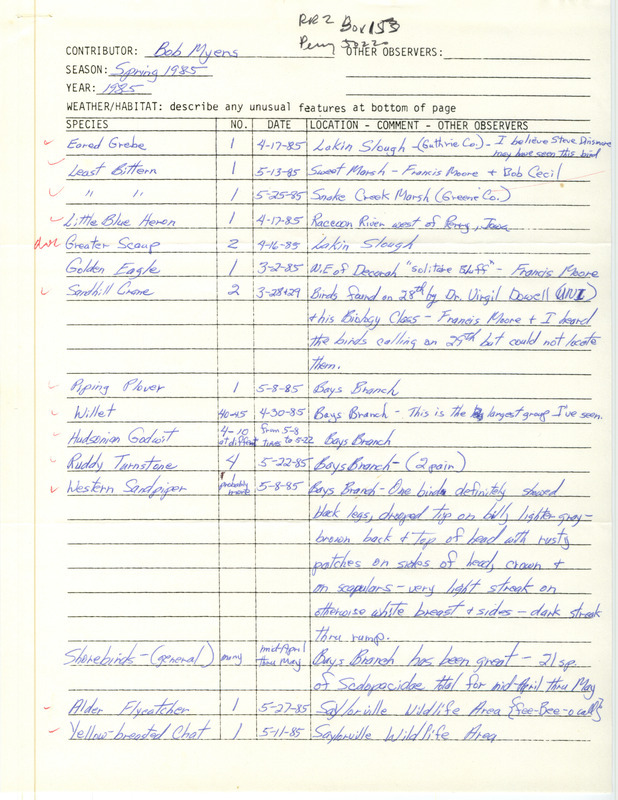 RR2 Box 153
Perry 50220
CONTRIBUTOR: Bob Myers OTHER OBSERVERS:
SEASON: Spring 1985
YEAR: 1985
WEATHER/HABITAT: describe any unusual features at bottom of page
SPECIES NO. DATE LOCATION - COMMENT - OTHER OBSERVERS
Eared Grebe 1 4-17-85 Lakin Slough - (Guthrie Co.) - I believe Steve Dinsmore
may have seen this bird
Least Bittern 1 5-13-85 Sweet Marsh - Francis Moore + Bob Cecil
" " 1 5-25-85 Snake Creek Marsh (Greene Co.)
Little Blue Heron 1 4-17-85 Raccoon River west of Perry, Iowa
Greater Scaup 2 4-16-85 Lakin Slough
Golden Eagle 1 3-2-85 N.E of Decorah "solitare Bluff" - Francis Moore
Sandhill Crane 2 3-28+29 Birds found on 28th by Dr. Virgil Dowell (UNI)
+ his Biology Class - Francis Moore + I heard
the birds calling on 29th but could not locate
them.
Piping Plover 1 5-8-85 Bays Branch
Willet 40-45 4-30-85 Bays Branch - This is the largest group I've seen.
Hudsonian Godwit 4-10 at diffent times from 5-8 to 5-22 Bays Branch
Ruddy Turnstone 4 5-22-85 Bays Branch - (2 pair)
Western Sandpiper 1 probably more 5-8-85 Bays Branch - One bird definitely showed
black legs, drooped tip on bill, lighter gray-
brown back + top of head with rusty
patches on sides of head, crown +
on scapulars - very light streak on
otherwise white breast + sides - dark streak
thru rump.
Shorebirds - (general) many mid April thru May Bays Branch has been great - 21 sp.
of Scolopacidae total for mid April thru May
Alder Flycatcher 1 5-27-85 Saylorville Wildlife Area {fee-Bee-o call}
Yellow-breasted Chat 1 5-11-85 Saylorville Wildlife Area